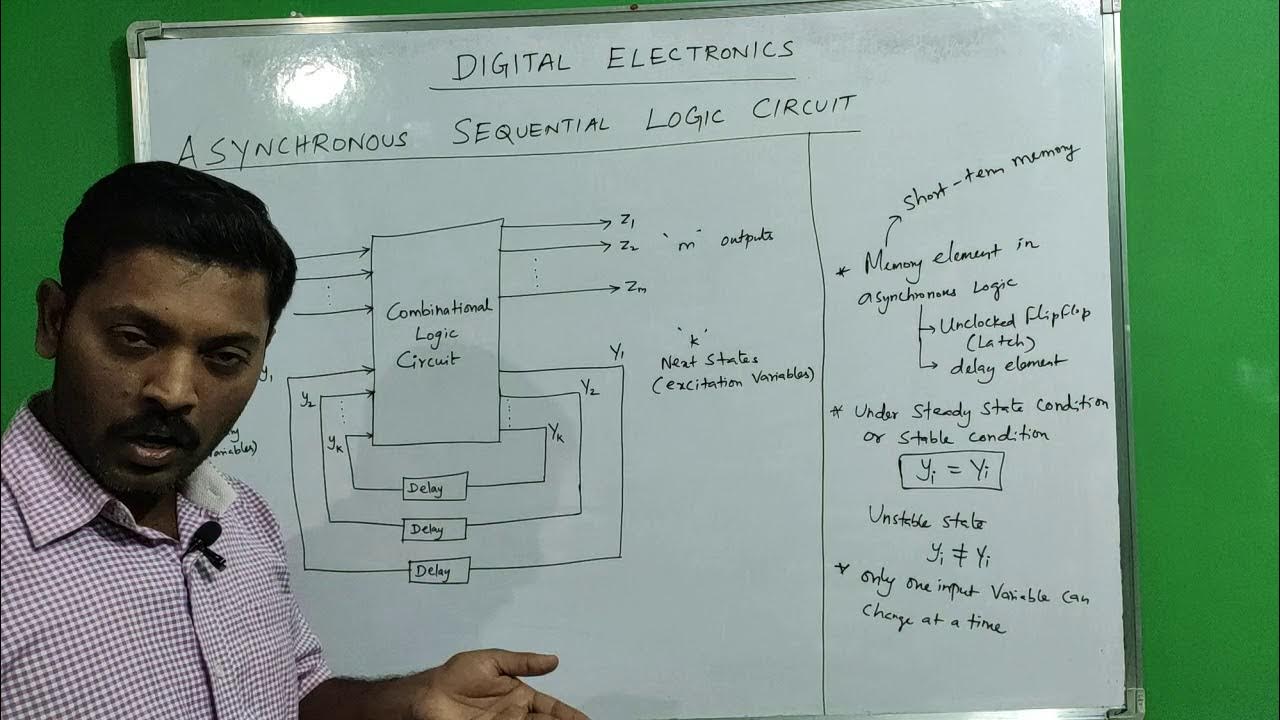 DIGITAL ELECTRONICS
ASYNCHRONOUS SEQUENTIAL LOGIC CIRCUIT
Z1
Z2
'm' outputs
Zm
Combinational
Logic
Circuit
'k'
Next States
(excitation Variables)
Y1
Y2
Yk
y1
y2
yk
Delay
Delay
Delay
short-term memory
* Memory element in
asynchronous Logic
Unclocked flipflop
(Latch)
delay element
* Under Steady State Condition
or stable condition
yi = Yi
Unstable state
yi ≠ Yi
* only one input Variable can
change at a time